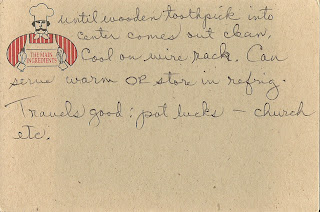 until wooden toothpick into
center comes out clean.
Cool on wire rack. Can
serve warm OR stor in refrig.
Travels good: pot lucks - church
etc.
THE MAIN
INGREDIENTS